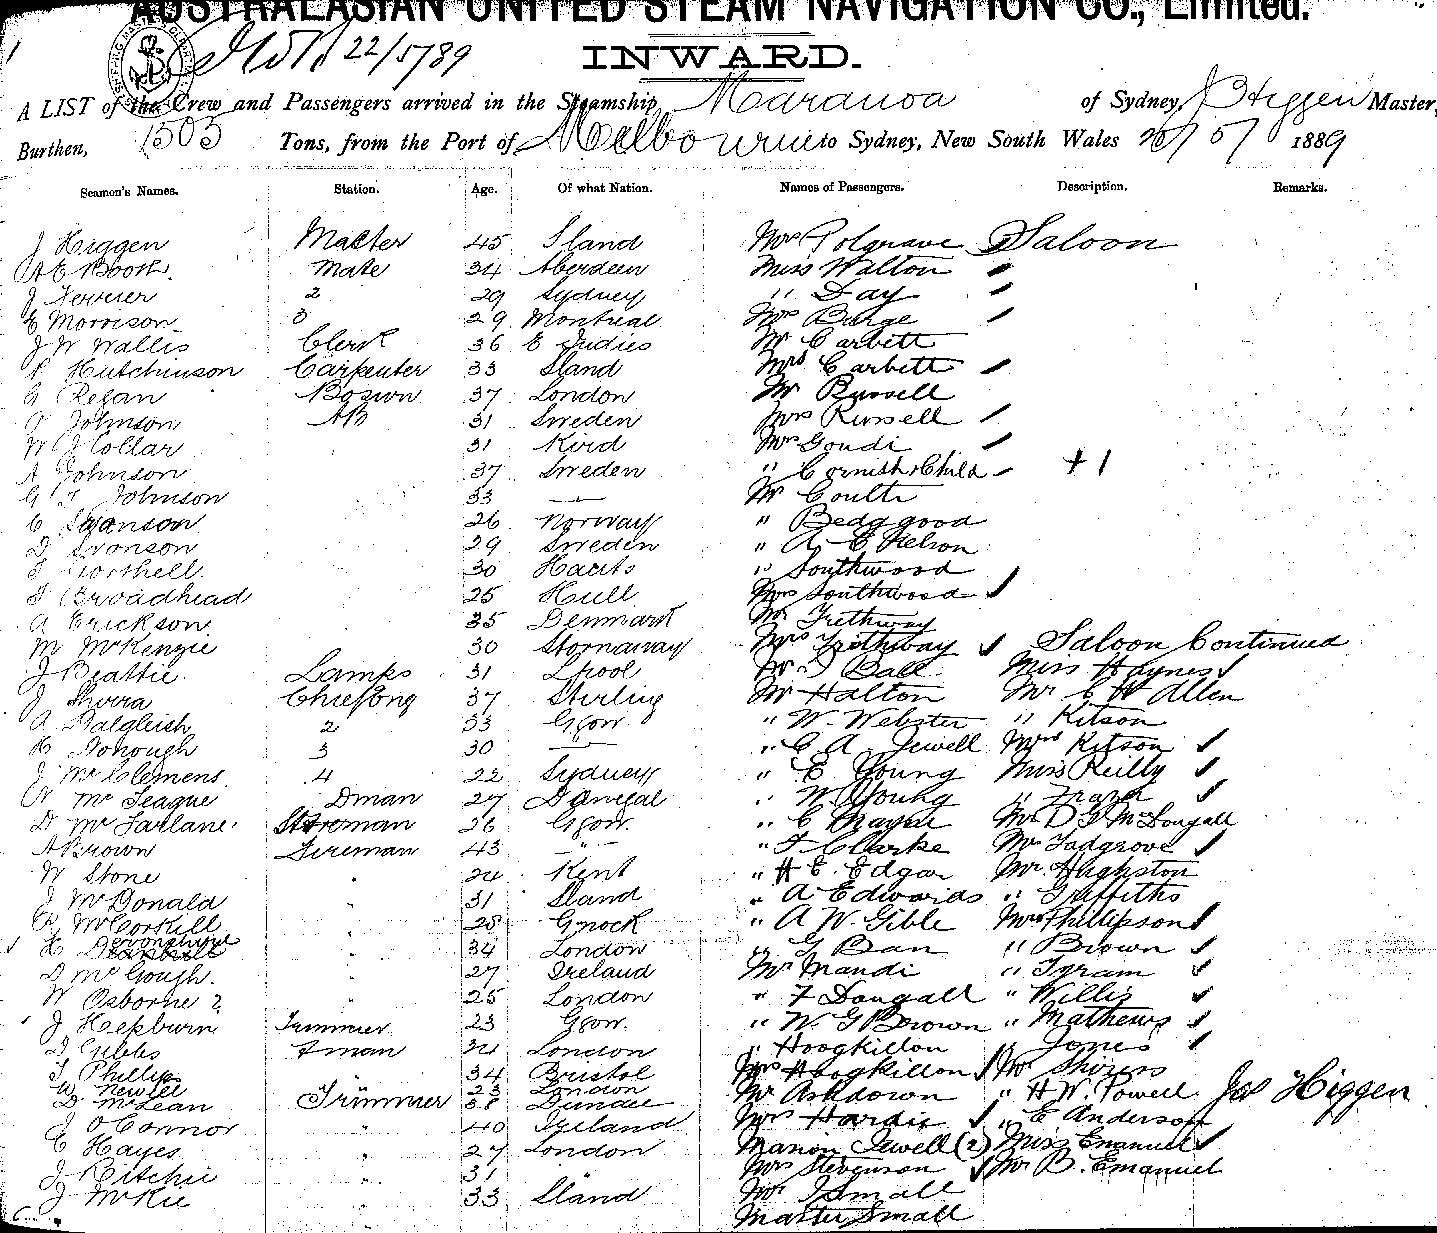 AUSTRALASIAN UNITED STEAM NAVIGATION CO., Limited.
22/5/89
INWARD.
A LIST of the Crew and Passengers arrived in the Steamship Maranoa of Sydney, J Higgen Master,
Burthen, 1505 Tons, from the Port of Melbourne to Sydney, New South Wales 1889
Seamen's Names. Station. Age. Of what Nation. Names of Passengers. Description. Remarks.
J Higgen Master 45 Sland Mrs Polgrave Saloon
A E Booth Mate 34 Aberdeen Miss Walton "
J 2 29 Sydney " Day "
E Morrison 3 29 Montreal Mrs Barge "
J W Wallis Clerk 36 E Indies Mr Carbett
Hutchinson Carpenter 33 Sland Mrs Carbett
Regan Boswn 37 London Mr Russell
Johnson AB 31 Sweden Mrs Russell
W J Collar 31 Mrs Goudi
A Johnson 37 Sweden " Cornish & Child + 1
G T Johnson 33 —"— Mr Coulter
C Swanson 26 Norway " Bedggood
D Swanson 29 Sweden " A. E Nelson
30 Hants " Southwood
T Broadhead 25 Hull Mrs Southwood
A Erickson 35 Denmark Mr Trethway
M McKenzie 30 Stornaway Mrs Trethway Saloon Continued
J Beattie Lamps 31 Lpool Mr Ball Miss Haynes
J Shirra Chief Eng 37 Stirling Mr Halton Mr C W Allen
A Dalgleish 2 33 Ggow " W. Webster " Kitson
Donough 3 30 —"— " C A Jewell Mrs Kitson
J McClemens 4 22 Sydney " E Young Miss Reilly
McTeague Dman 27 Donegal " W Young " Frazer
D McFarlane Storeman 26 Ggow. " C Mayne Mr D McDougall
A Brown Fireman 43 —"— " F Clarke Mrs Tadgrove
W Stone " 24 Kent " H E. Edgar Mr Hughston
J McDonald " 31 Sland " A Edwards " Griffiths
R McCorkill " 28 Gnock " A W. Gible Mrs Phillipson
H Devonshire " 34 London " G Ban " Brown
D McGough. " 27 Ireland Mr Mandi " Igram
W Osborne " 25 London " F Dougall " Willis
J Hepburn Trimmer 23 Ggow. " W. G Brown " Mathews
Gibbs Fman 34 London " Hoogkillon " Jones
T Phillips " 34 Bristol Mrs Hoogkillon Mr Shiress
W Newell " 23 London Mr Ashdown " H W. Powell Jas Higgen
D McLean Trimmer 38 Dundee Mrs Hardie " E Anderson
J O'Connor " 40 Ireland Marion Jewell (2) Miss Emanuel
C Hayes " 27 London Mrs Stevenson Mr B. Emanuel
J Ritchie " 31 " Mr J Small
J McKie " 33 Sland Master Small